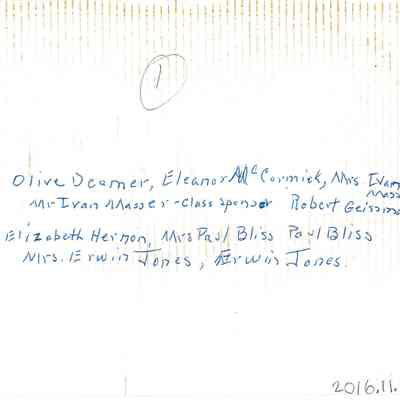 1
Olive Deamer, Eleanor McCormick, Mrs Ivan
Mr Ivan Masser - class sponsor Robert
Elizabeth Hernon, Mrs Paul Bliss Paul Bliss
Mrs. Erwin Jones, Erwin Jones.
2016.11.